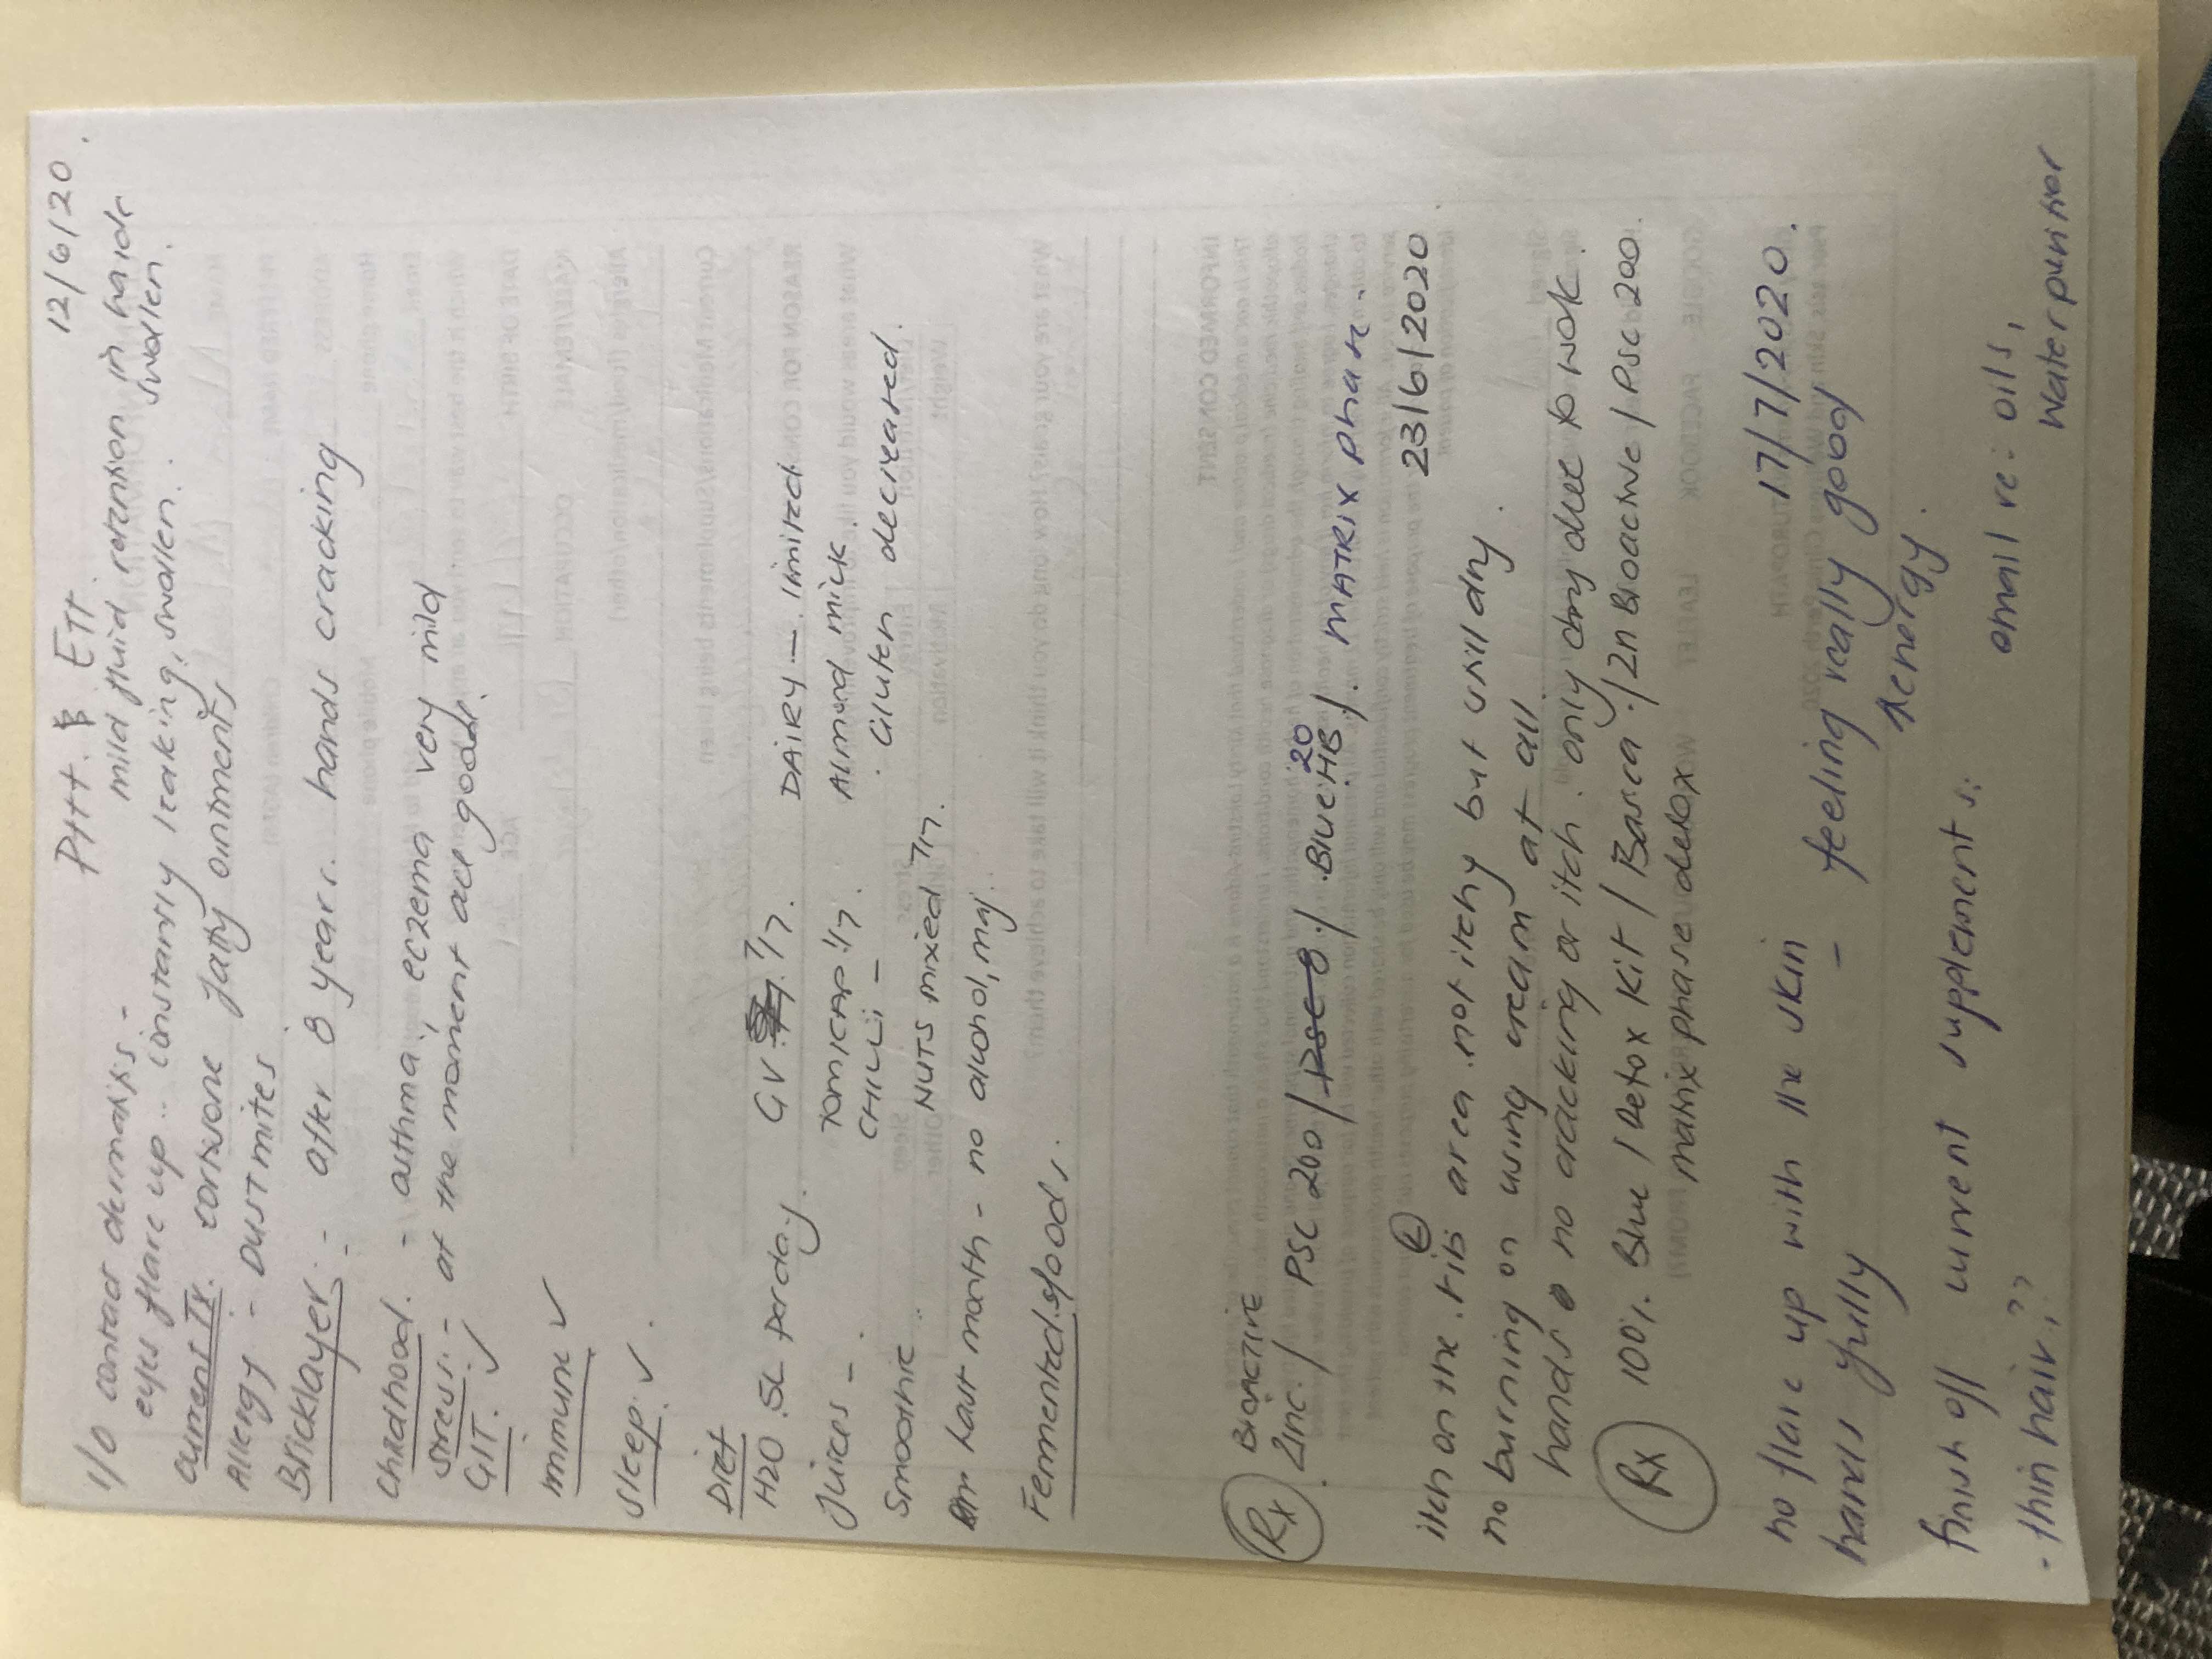 12/6/20.
mild fluid retention in hands
swollen.
1/0 contact dermatitis -
eyes flare up.. constantly leaking, swollen.
current Tx. cortisone fatty ointments
Allergy - DUST mites
Bricklayer - after 8 years. hands cracking
childhood. - asthma, eczema very mild
stress:- at the moment all good.
GIT. ✓
immune ✓
sleep. ✓.
Diet
H2O .5L per day. GV 7/7. DAIRY - limited
Juices - . 1/7. Almond milk.
CHILLI - . Gluten decreased.
Smoothie .. NUTS mixed 7/7.
last month - no alcohol,
Fermented foods.
BIOACTIVE
20
Rx Zinc. / PSC 200 / . Blue HB /. MATRIX phase.
23/6/2020
itch on the ribs area not itchy but still dry.
no burning on using cream at all.
hands no cracking or itch. only dry due to work.
Rx 100%. Blue / Detox Kit / Basica / Zn Bioactive / PSC 200.
matrix phase detox
17/7/2020.
no flare up with the skin - feeling really good
hands fully energy.
finish off current supplements.
email re: oils,
- thin hair?? Water purifier